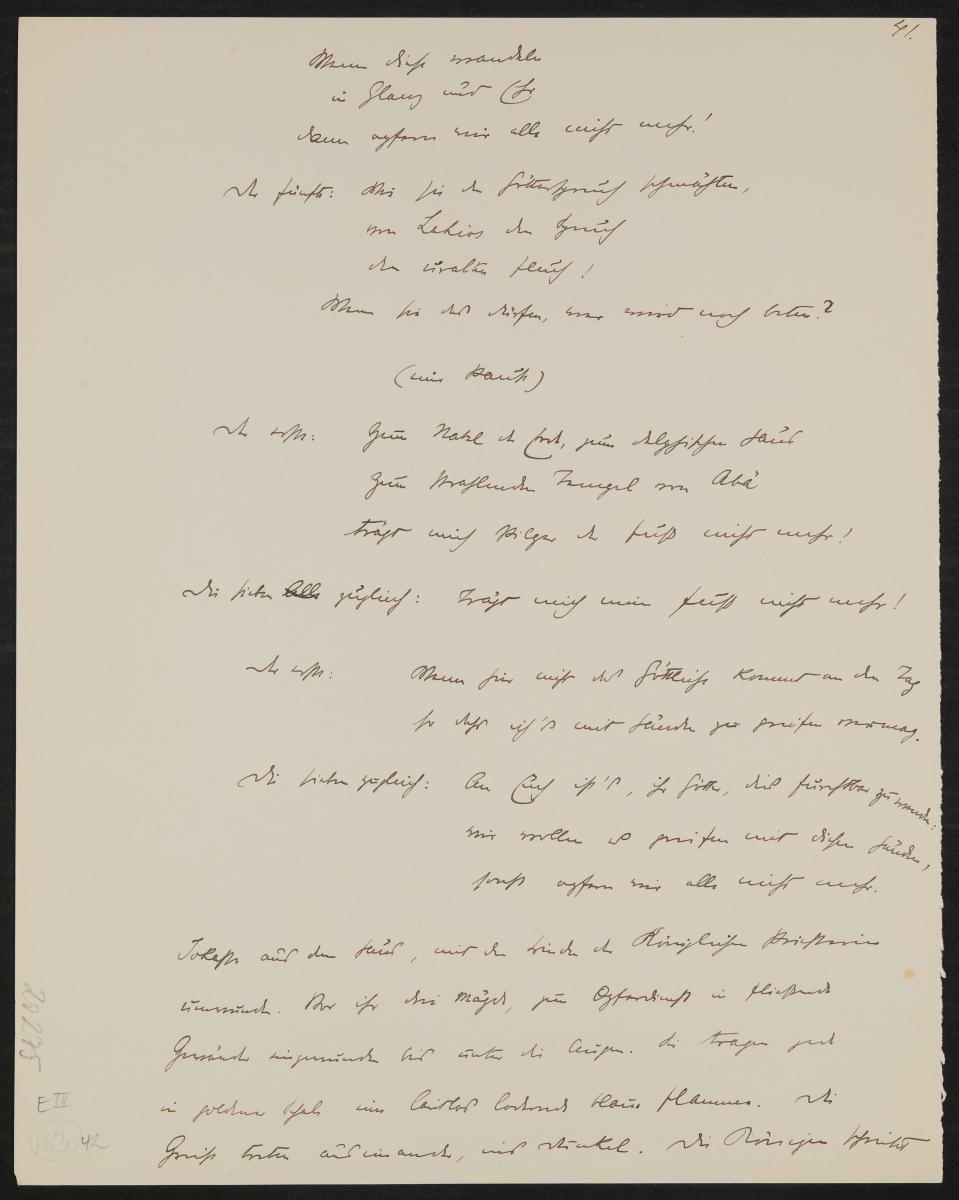 41.
Wenn diese wandeln
in Glanz und Ehr
dann opfern wir alle nicht mehr!
der fünfte: Wie sie den Götterspruch schmähten,
von Lakios den Spruch
den uralten Fluch!
Wenn sie das dürfen, wer wird noch beten?
(eine Pause)
der erste: Zum Nabel der Erde, zum delphischen Haus
zum strahlenden Tempel von Abä
trägt mich Pilger der Fuß nicht mehr!
Die sieben alle zugleich: Trägt mich mein Fuß nicht mehr!
der erste: Wenn hier nicht das Göttliche kommt an den Tag
so dass ich's mit Händen zu greifen vermag.
Die sieben zugleich: An Euch ist's, ihr Götter, dies furchtbar zu wenden:
wir wollen es greifen mit diesen Händen,
sonst opfern wir alle nicht mehr.
Jokaste aus dem Haus, mit der Binde der Königlichen Priesterin
umwunden. Vor ihr drei Mägde, zum Opferdienst in fließende
Gewänder eingewunden bis unter die Augen. Sie tragen jede
in goldener Schale eine lautlos lodernde blaue Flamme. Die
Greise treten auseinander, ins Dunkel. Die Königin schreitet
20275
E III
163 42